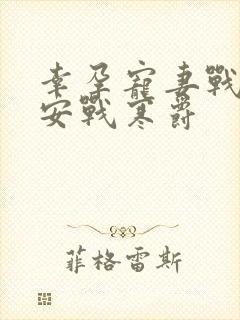 幸孕寵妻戰
安戰寒爵
菲格雷斯